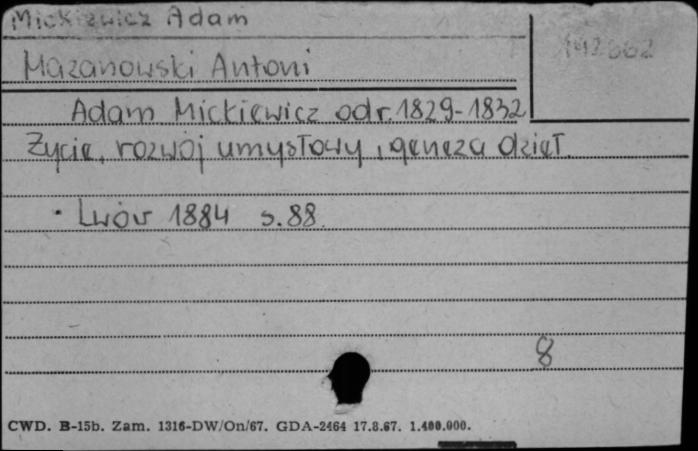 Mickiewicz Adam
142662
Mazanowski Antoni
Adam Mickiewicz od r. 1829-1832
Życie, rozwój umysłowy, geneza dzieł.
Lwów 1884 s. 88.
8
CWD. B-15b. Zam. 1316-DW/On/67. GDA-2464 17.8.67. 1.400.000.